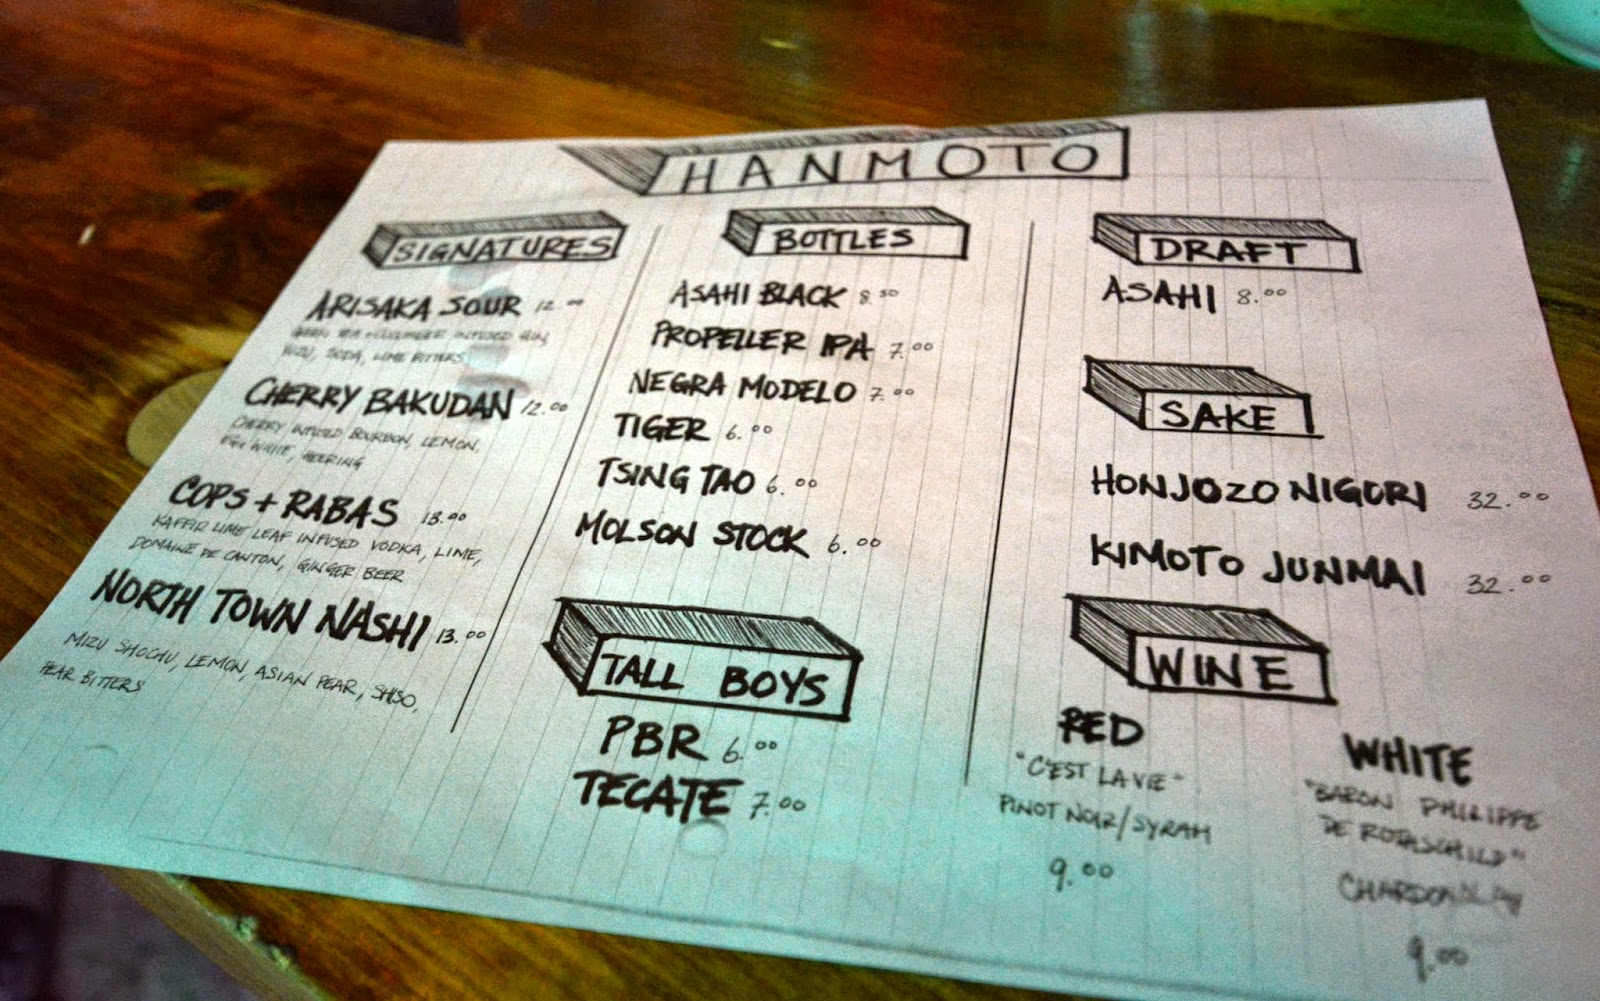 HANMOTO
SIGNATURES
ARISAKA SOUR 12.00
GREEN TEA + CUCUMBER INFUSED GIN,
YUZU, SODA, LIME BITTERS
CHERRY BAKUDAN 12.00
CHERRY INFUSED BOURBON, LEMON,
EGG WHITE, HEERING
COPS + RABAS 13.00
KAFFIR LIME LEAF INFUSED VODKA, LIME,
DOMAINE DE CANTON, GINGER BEER
NORTH TOWN NASHI 13.00
MIZU SHOCHU, LEMON, ASIAN PEAR, SHISO,
PEAR BITTERS
BOTTLES
ASAHI BLACK 8.50
PROPELLER IPA 7.00
NEGRA MODELO 7.00
TIGER 6.00
TSING TAO 6.00
MOLSON STOCK 6.00
TALL BOYS
PBR 6.00
TECATE 7.00
DRAFT
ASAHI 8.00
SAKE
HONJOZO NIGORI 32.00
KIMOTO JUNMAI 32.00
WINE
RED
"C'EST LA VIE"
PINOT NOIR/SYRAH
9.00
WHITE
"BARON PHILIPPE
DE ROTHSCHILD"
CHARDONNAY
9.00